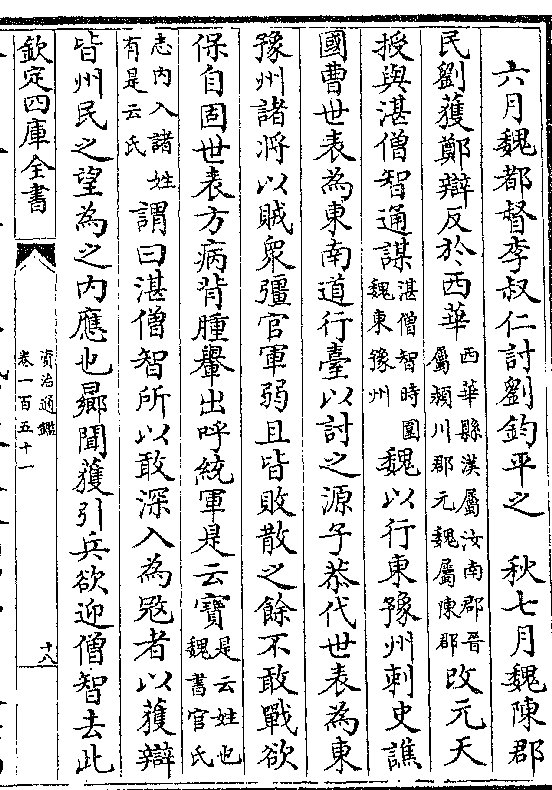 六月魏都督李叔仁討劉鈞平之　秋七月魏陳郡
民劉獲鄭辯反於西華西華縣漢屬汝南郡晉屬潁川郡元魏屬陳郡改元天
授與湛僧智通謀湛僧智時圍魏東豫州魏以行東豫州刺史譙
國曹世表為東南道行臺以討之源子恭代世表為東
豫州諸將以賊衆彊官軍弱且皆敗散之餘不敢戰欲
保自固世表方病背腫轝出呼統軍是云寶是云姓也魏書官氏
志内入諸姓有是云氏謂曰湛僧智所以敢深入為寇者以獲辯
皆州民之望為之内應也曏聞獲引兵欲迎僧智去此
欽定四庫全書
資治通鑑
卷一百五十一
十八